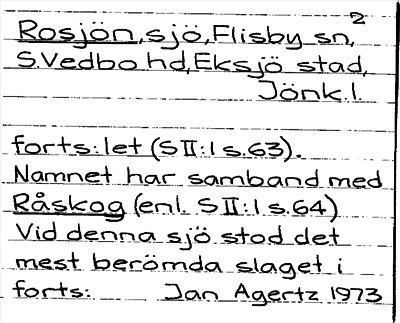 2
Rosjön, sjö, Flisby sn,
S. Vedbo hd, Eksjö stad,
Jönk. l.
forts: let (S II:1 s.63).
Namnet har samband med
Råskog (enl. S II:1 s.64)
Vid denna sjö stod det
mest berömda slaget i
forts: Jan Agertz 1973